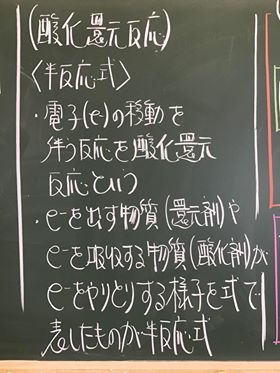 (酸化還元反応)
〈半反応式〉
・電子(e⁻)の移動を
伴う反応を酸化還元
反応という
・e⁻を出す物質(還元剤)や
e⁻を吸収する物質(酸化剤)が
e⁻をやりとりする様子を式で
表したものが半反応式